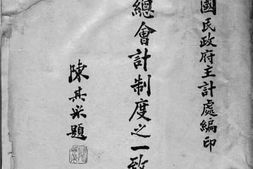 國民政府主計處編印
總會計制度之一致
陳其采題